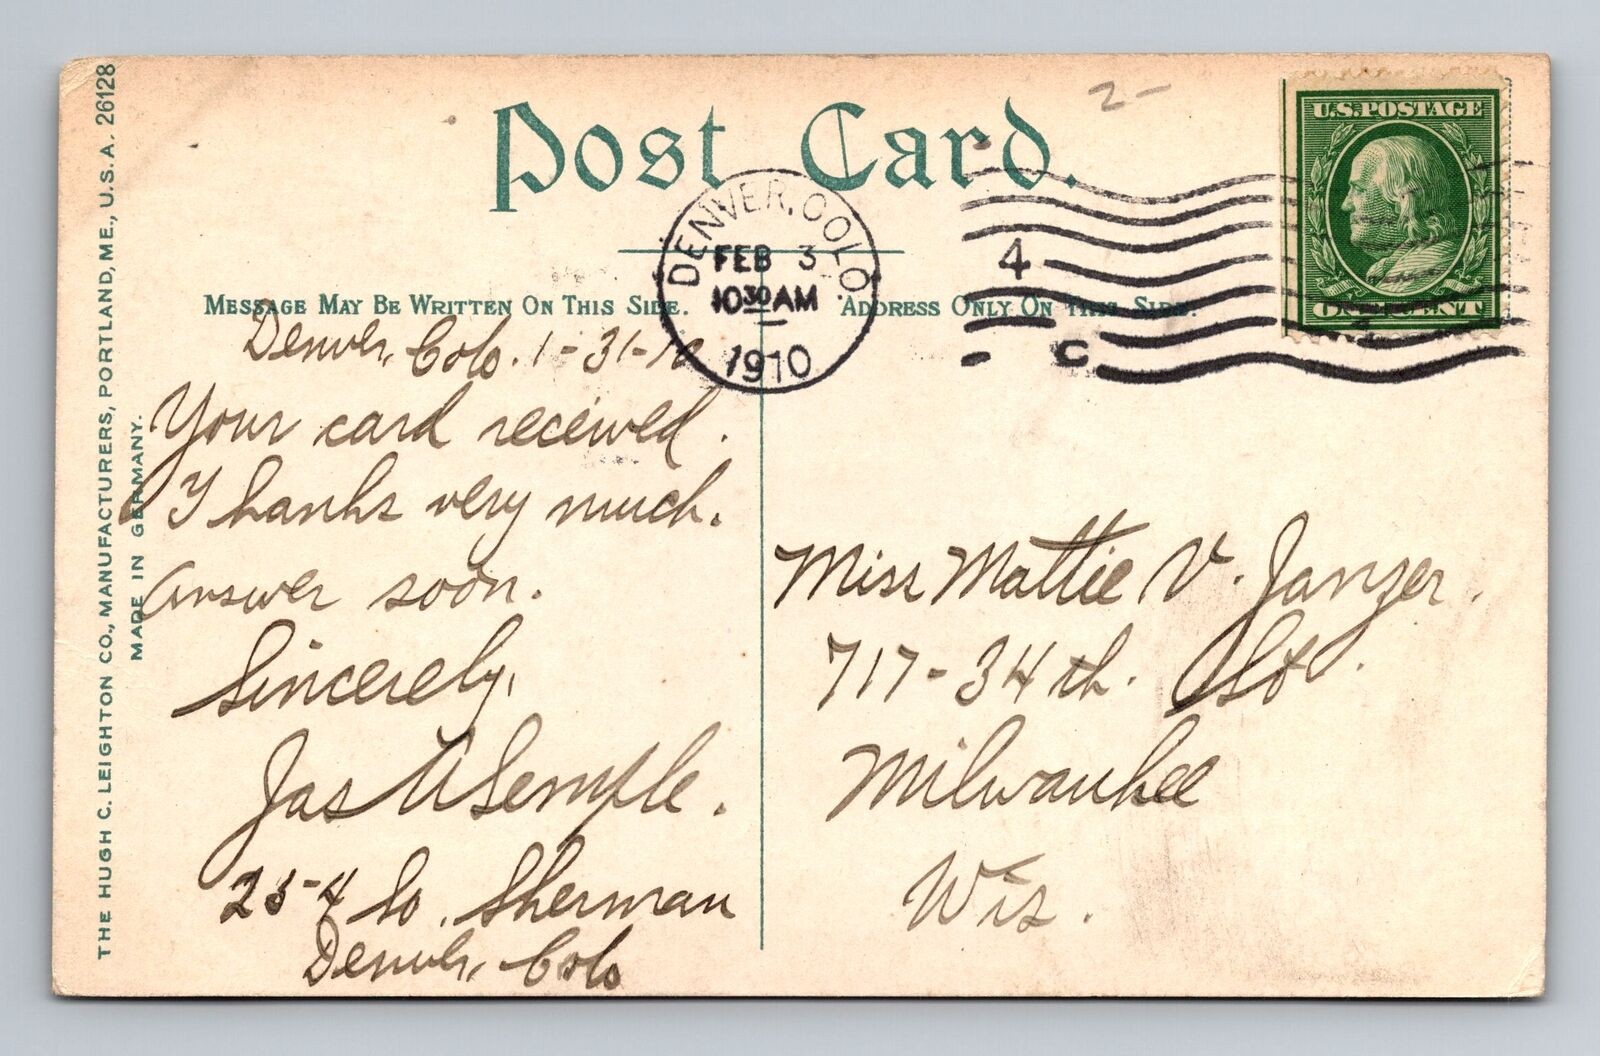 Post Card.
2-
U.S. POSTAGE
ONE CENT
DENVER, COLO.
FEB 3
10 30 AM
1910
4
C
MESSAGE MAY BE WRITTEN ON THIS SIDE.
ADDRESS ONLY ON THIS SIDE.
THE HUGH C. LEIGHTON CO., MANUFACTURERS, PORTLAND, ME., U.S.A. 26128
MADE IN GERMANY.
Denver, Colo. 1-31-10
Your card received.
Thanks very much.
Answer soon.
Sincerely,
Jas Semple.
254 So. Sherman
Denver, Colo
Miss Mattie V. Janzer.
717-34th. St.
Milwaukee
Wis.